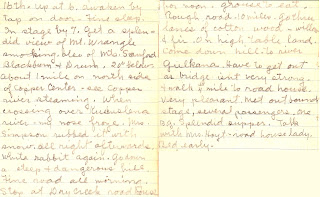 16th - Up at 6. Awaken by
tap on door - Fine sleep.
In stage by 7. Get a splen-
did view of Mt. Wrangle
smoking, also of Mts. Sanford
Blackburn & Drum. - 20° below
about 1 mile on north side
of Copper Center - see Copper
river steaming. When
crossing over
river - nose froze. Mr.
Simpson rubbed it with
snow. all right afterwards.
White rabbit again. Go down
a steep & dangerous hill.
Fine road all morning.
Stop at Dry Creek road house
for noon - grouse to eat.
Rough road 10 miles. Gather
bunch of cotton wood - willow
& fir. On high table land
Come down hill to river
Gulkana. Have to get out
as bridge isn't very strong -
& walk 1/2 mile to road house.
very pleasant. Met out bound
stage, several passengers, one
Eng. Splendid supper. Talk
with Mrs. Hoyt - road house lady.
Bed early.